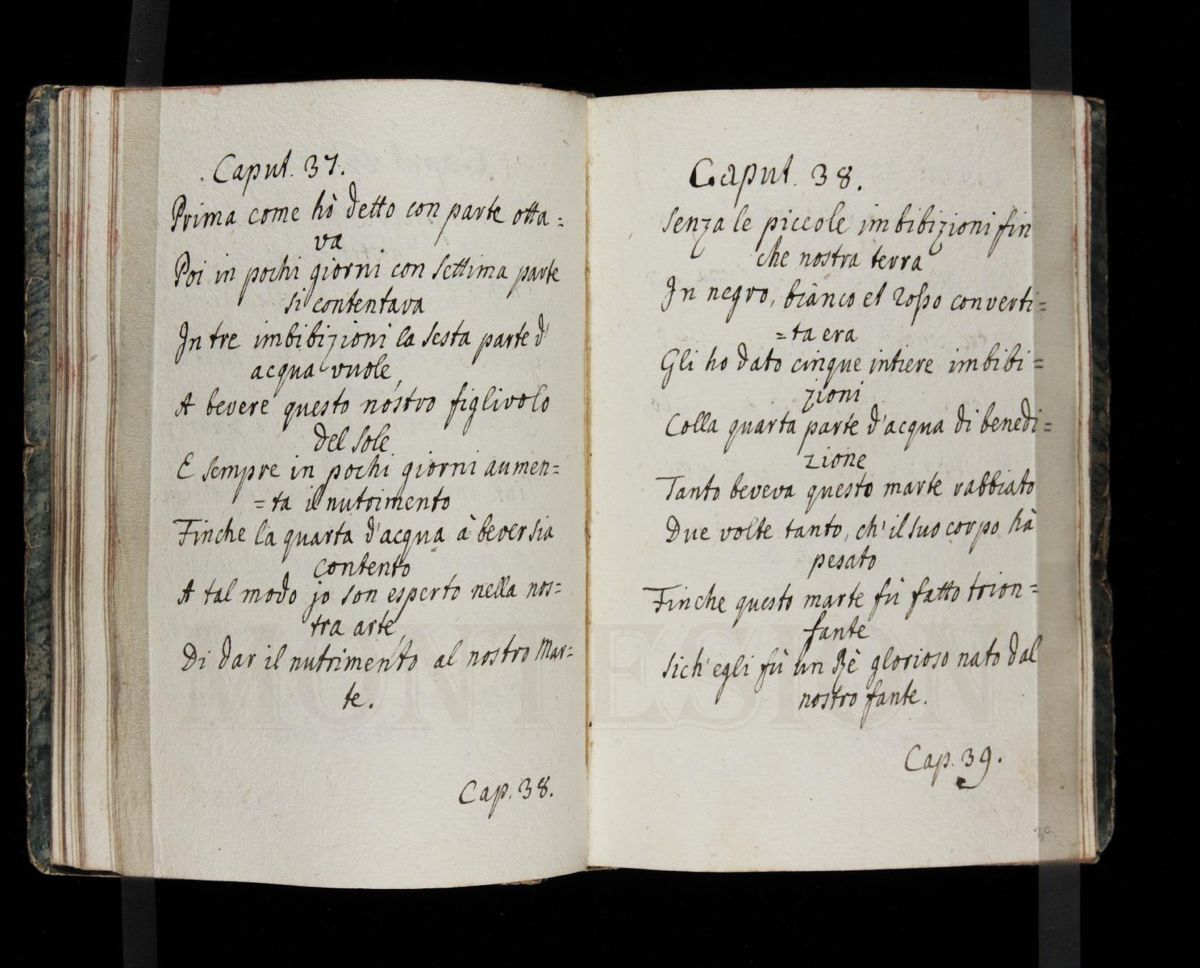 Caput. 37.
Prima come hò detto con parte otta=
va
Poi in pochi giorni con settima parte
si contentava
In tre imbibizioni la sesta parte d'
acqua vuole,
A bevere questo nostro figlivolo
del sole
E sempre in pochi giorni aumen=
=ta il nutrimento
Finche la quarta d'acqua à bever sia
contento
A tal modo jo son esperto nella nos=
tra arte,
Di dar il nutrimento al nostro Mar=
te.
Cap. 38.
Caput. 38.
Senza le piccole imbibizioni fin
che nostra terra
In negro, bianco et rosso converti=
=ta era
Gli ho dato cinque intiere imbibi=
zioni
Colla quarta parte d'acqua di benedi=
zione
Tanto beveva questo marte rabbiato
Due volte tanto, ch'il suo corpo hà
pesato
Finche questo marte fù fatto trion=
fante
Sich'egli fù un Rè glorioso nato dal
nostro fante.
Cap. 39.
30
MONTESION